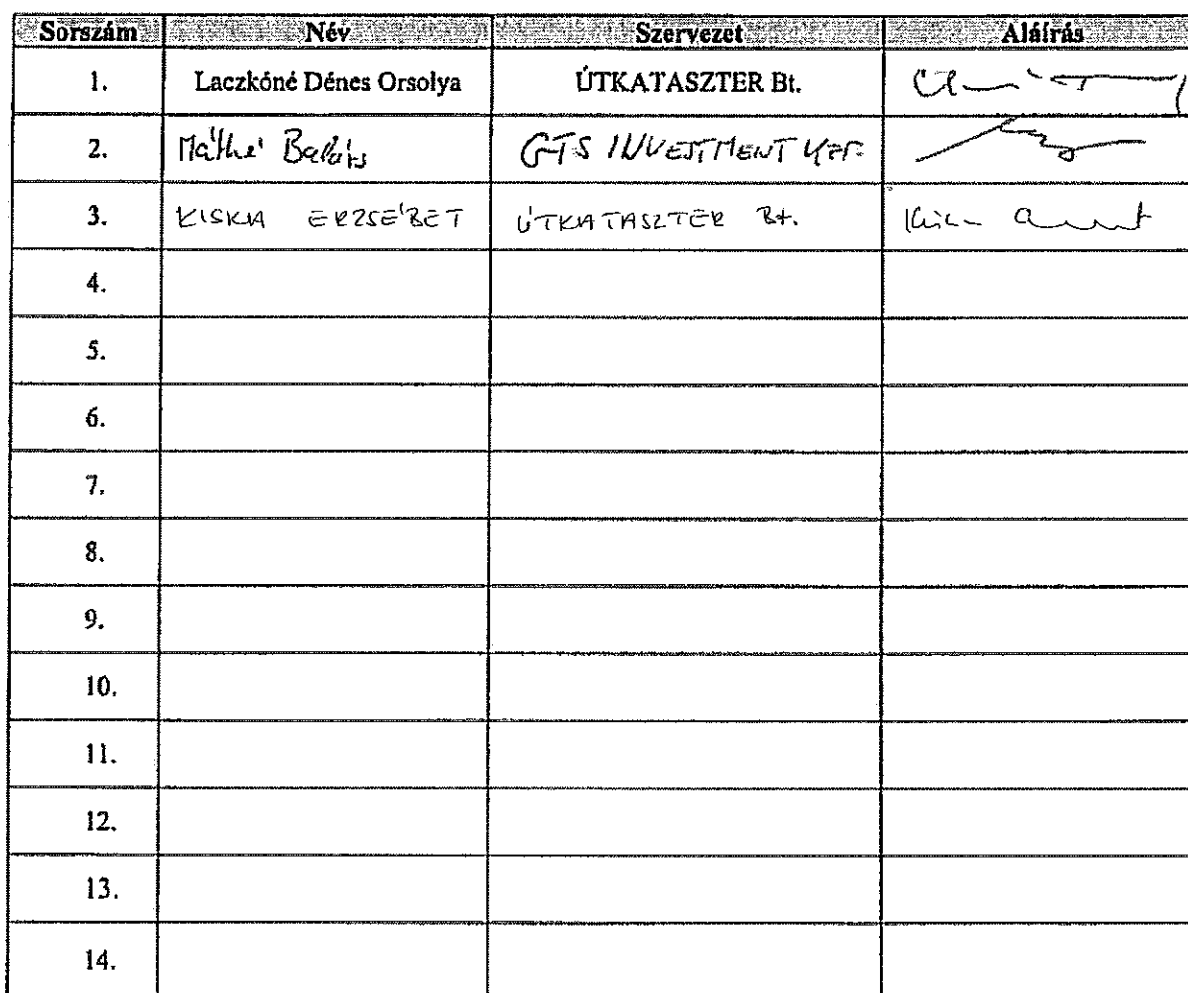 Sorszám Név Szervezet Aláírás
1. Laczkóné Dénes Orsolya ÚTKATASZTER Bt.
2. Máthé Balázs GTS INVESTMENT KFT.
3. KISKA ERZSÉBET ÚTKATASZTER Bt.
4.
5.
6.
7.
8.
9.
10.
11.
12.
13.
14.